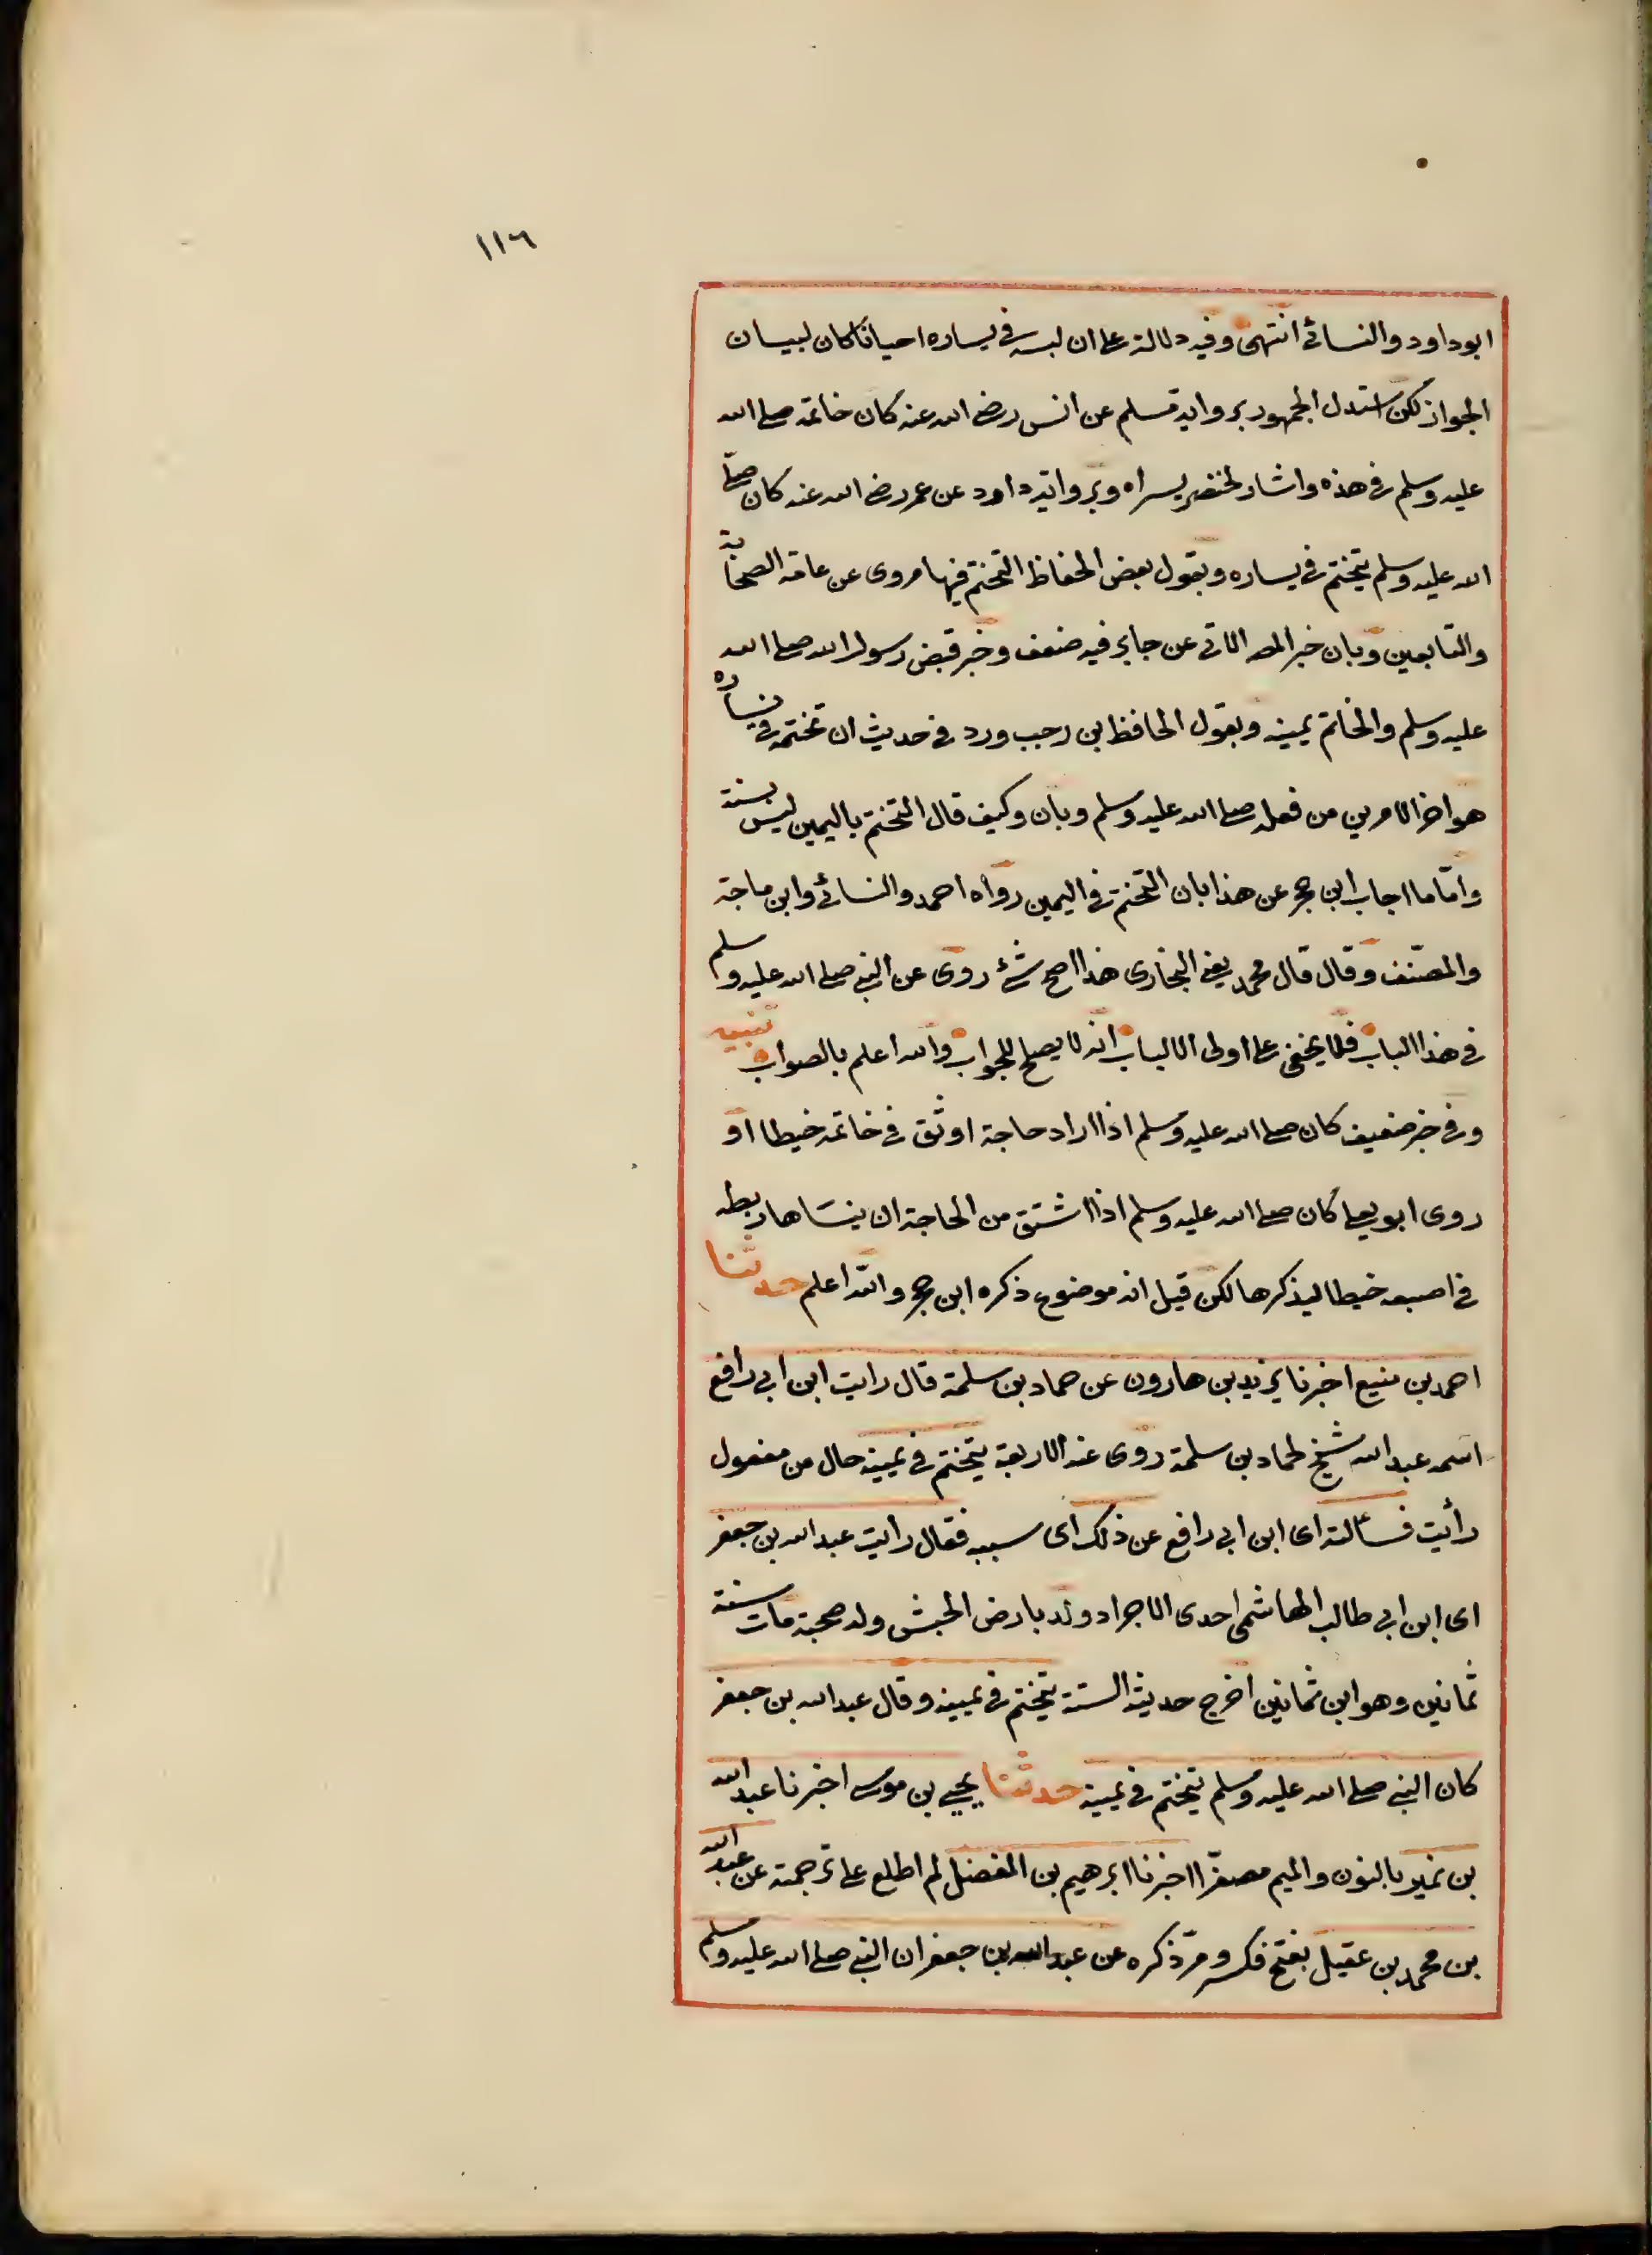 ١١٦
ابوداود والنسائى انتهى وفيه دلالة على ان لبسه فى يساره احيانا كان لبيان
الجواز لكن استدل الجمهور برواية مسلم عن انس رضى الله عنه كان خاتمه صلى الله
عليه وسلم فى هذه واشار لخنصر يسراه وبرواية داود عن عمر رضى الله عنه كان صلى
الله عليه وسلم يتختم فى يساره وبقول بعض الحفاظ التختم فيها مروى عن عامة الصحابة
والتابعين وبان خبر المص الاتى عن جابر فيه ضعف وخبر قبض رسول الله صلى الله
عليه وسلم والخاتم يمينه وبقول الحافظ بن رجب ورد فى حديث ان تختمه فى يساره
هو اخر الامرين من فعله صلى الله عليه وسلم وبان وكيف قال التختم باليمين ليس بسنة
واما ما اجاب ابن حجر عن هذا بان التختم فى اليمين رواه احمد والنسائى وابن ماجة
والمصنف وقال قال محمد يعنى البخارى هذا اصح شئ روى عن النبى صلى الله عليه وسلم
فى هذا الباب فلا يخفى على اولى الالباب انه لا يصلح للجواب والله اعلم بالصواب تنبيه
وفى خبر ضعيف كان صلى الله عليه وسلم اذا اراد حاجة اوثق فى خاتمه خيطا او
روى ابو يعلى كان صلى الله عليه وسلم اذا اشتق من الحاجة ان ينساها ربطه
فى اصبعه خيطا ليذكرها لكن قيل انه موضوع ذكره ابن حجر والله اعلم حدثنا
احمد بن منيع اخبرنا يزيد بن هارون عن حماد بن سلمة قال رايت ابن ابى رافع
اسمه عبد الله شيخ لحماد بن سلمة روى عنه الاربعة يتختم فى يمينه حال من مفعول
رأيت فسألته اى ابن ابى رافع عن ذلك اى سببه فقال رايت عبد الله بن جعفر
اى ابن ابى طالب الهاشمى احدى الاجواد ولد بارض الحبش وله صحبة مات سنة
ثمانين وهو ابن ثمانين اخرج حديثه الستة يتختم فى يمينه وقال عبد الله بن جعفر
كان النبى صلى الله عليه وسلم يتختم فى يمينه حدثنا يحيى بن موسى اخبرنا عبد الله
بن نمير بالنون والميم مصغرا اخبرنا ابرهيم بن المفضل لم اطلع على ترجمته عن عبد الله
بن محمد بن عقيل بفتح فكسر ومر ذكره عن عبد الله بن جعفر ان النبى صلى الله عليه وسلم